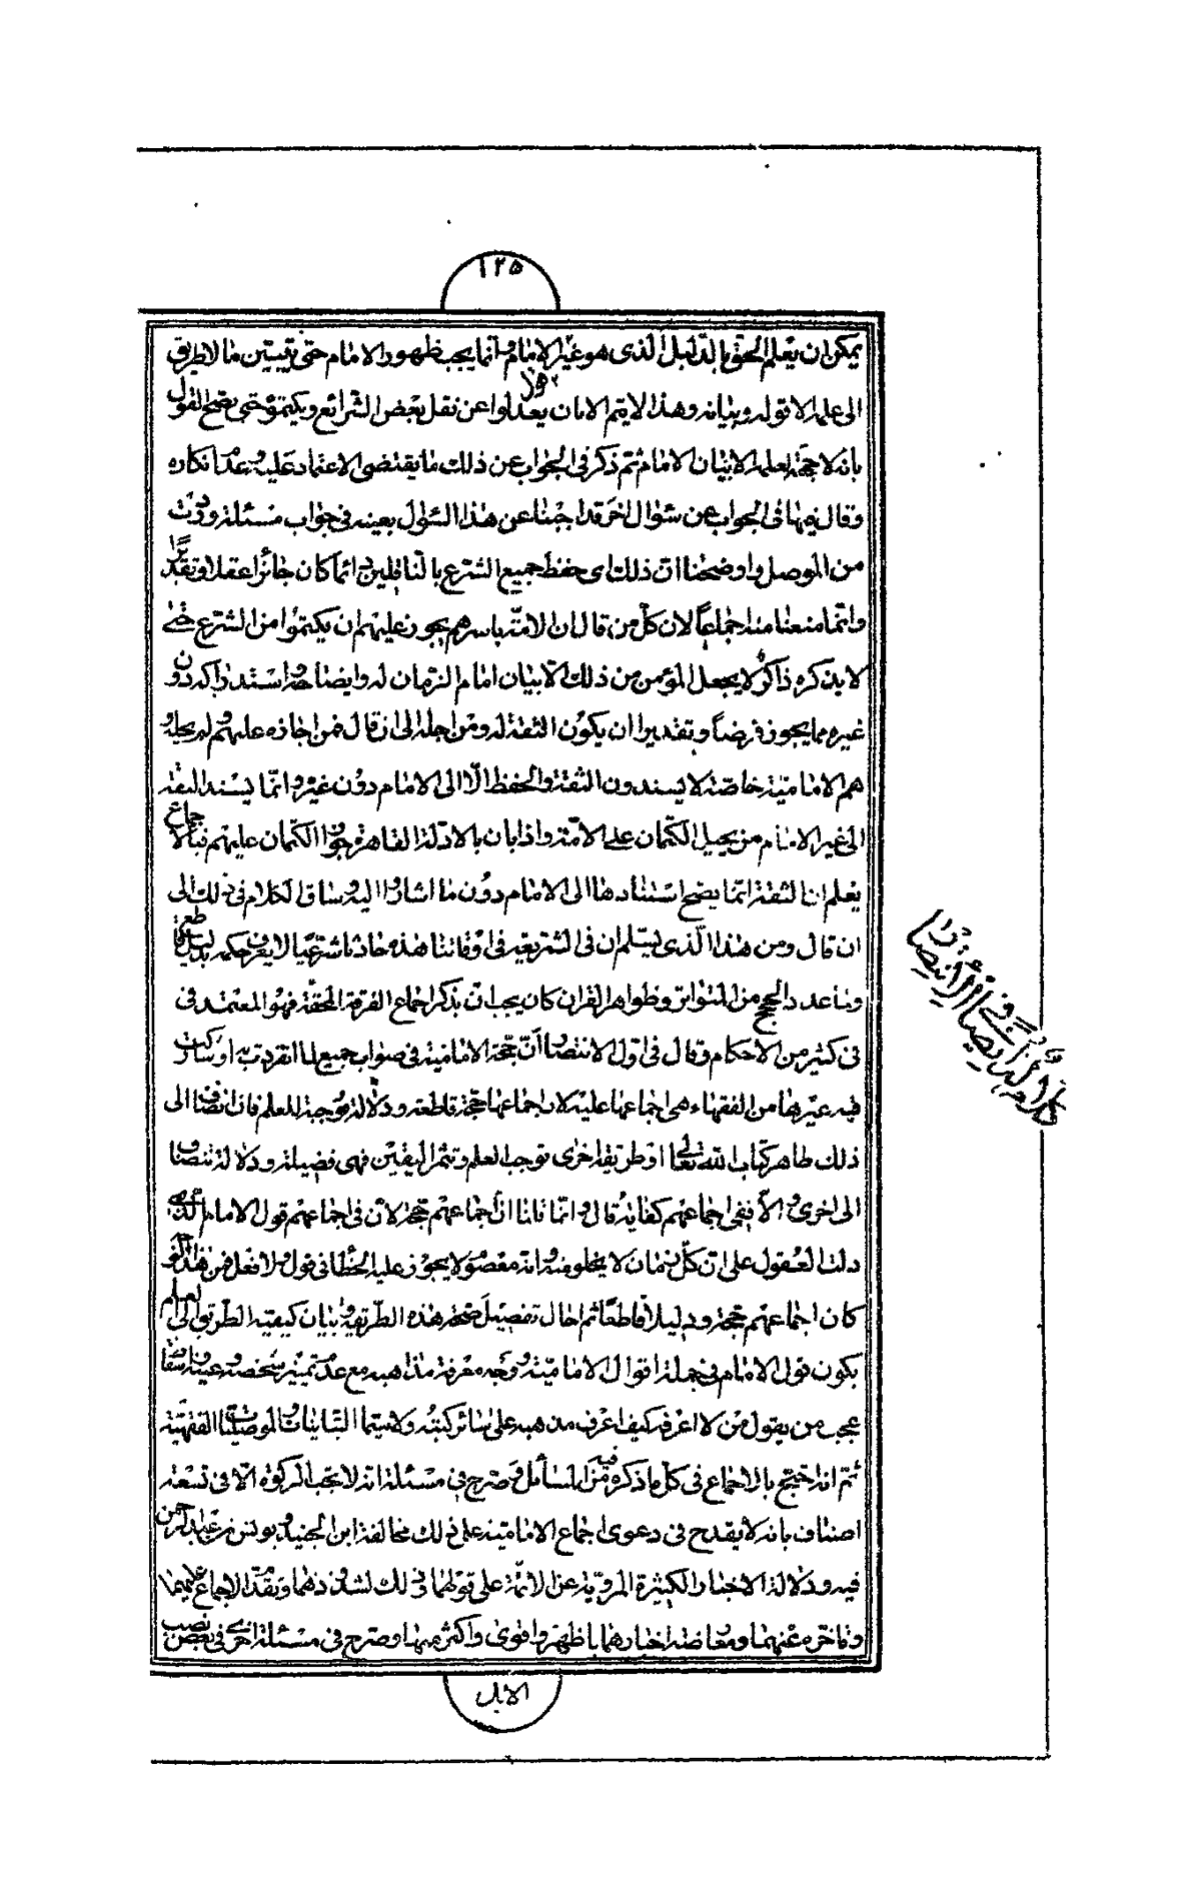 ١٢٥
يمكن ان يعلم الحق بالدليل الذى هو غير الامام وانما يجب ظهور الامام حتى تبيين ما لا طريق
الى علمه الا قوله وبيانه وهذا لا يتم الا بان يعدلوا عن نقل بعض الشرائع ويكتموه حتى يصح القول
بانه لا حجة لعلمه الا بيان الامام ثم ذكر فى الجواب عن ذلك ما يقتضى الاعتماد عليه وعدم انكاره
وقال فيها فى الجواب عن سؤال اخر قد اجبنا عن هذا السؤال بعينه فى جواب مسئلة وردت
من الموصل واوضحنا ان ذلك اى حفظ جميع الشرع بالناقلين دائما كان جائزا عقلا وتقديرا
وانما منعنا منه اجماعا لان كل من قال ان الامة باسرهم يجوز عليهم ان يكتموا من الشرع حتى
لا يذكره ذاكر لا يجعل المؤمن من ذلك الا بيان امام الزمان له وايضاحه واستدراكه دون
غيره مما يجوز فرضا وتقديرا ان يكون الثقة له ومن اجله الى ان قال فمن اجازه عليهم ولم يحله
هم الامامية خاصة لا يسندون الثقة والحفظ الا الى الامام دون غيره وانما يسند الثقة
الى غير الامام من يحيل الكتمان على الامة واذا بان بالادلة القاهرة جواز الكتمان عليهم فبالاجماع
يعلم ان الثقة انما يصح استنادها الى الامام دون ما اشاروا اليه وساق الكلام فى ذلك الى
ان قال ومن هذا الذى يسلم ان فى الشريعة فى اوقاتنا هذه حادثا شرعيا لا يعرف حكمه بدليل قاطع
وما عدد الحجج من المتواتر وظواهر القران كان يجب ان يذكر اجماع الفرقة المحقة فهو المعتمد فى
فى كثير من الاحكام وقال فى اول الانتصار ان حجة الامامية فى صواب جميع ما انفردت به او شاركت
فيه غيرها من الفقهاء هى اجماعها عليه لان اجماعها حجة قاطعة ودلالة موجبة للعلم فان انضاف الى
ذلك ظاهر كتاب الله تعالى او طريقة اخرى توجب العلم وتثمر اليقين فهى فضيلة ودلالة تنضاف
الى اخرى والا ففى اجماعهم كفاية قال وانما قلنا ان اجماعهم حجة لان فى اجماعهم قول الامام الذى
دلت العقول على ان كل زمان لا يخلو منه وانه معصوم لا يجوز عليه الخطأ فى قول ولا فعل فمن هذا الوجه
كان اجماعهم حجة ودليلا قاطعا ثم احال تفصيل صحة هذه الطريقة وبيان كيفية الطريق الى العلم
بكون قول الامام فى جملة اقوال الامامية ووجه معرفة مذاهبه مع عدم تميز شخصه وعينه
عجب من يقول من لا اعرفه كيف اعرف مذهبه على سائر كتبه ولا سيما التباينات والموصليات الفقهية
ثم انه احتج بالاجماع فى كل ما ذكره فيه من المسائل وصرح فى مسئلة انه لا تجب الزكوة الا فى تسعة
اصناف بانه لا يقدح فى دعوى اجماع الامامية على ذلك مخالفة ابن الجنيد ويونس بن عبد الرحمن
فيه ودلالة الاخبار الكثيرة المروية عن الائمة على قولهما فى ذلك لشذوذهما وتقدم الاجماع عليهما
وتاخره عنهما ومعارضة اخبارهما باظهر واقوى واكثر منها وصرح فى مسئلة اخرى فى بعض نصب
الابل